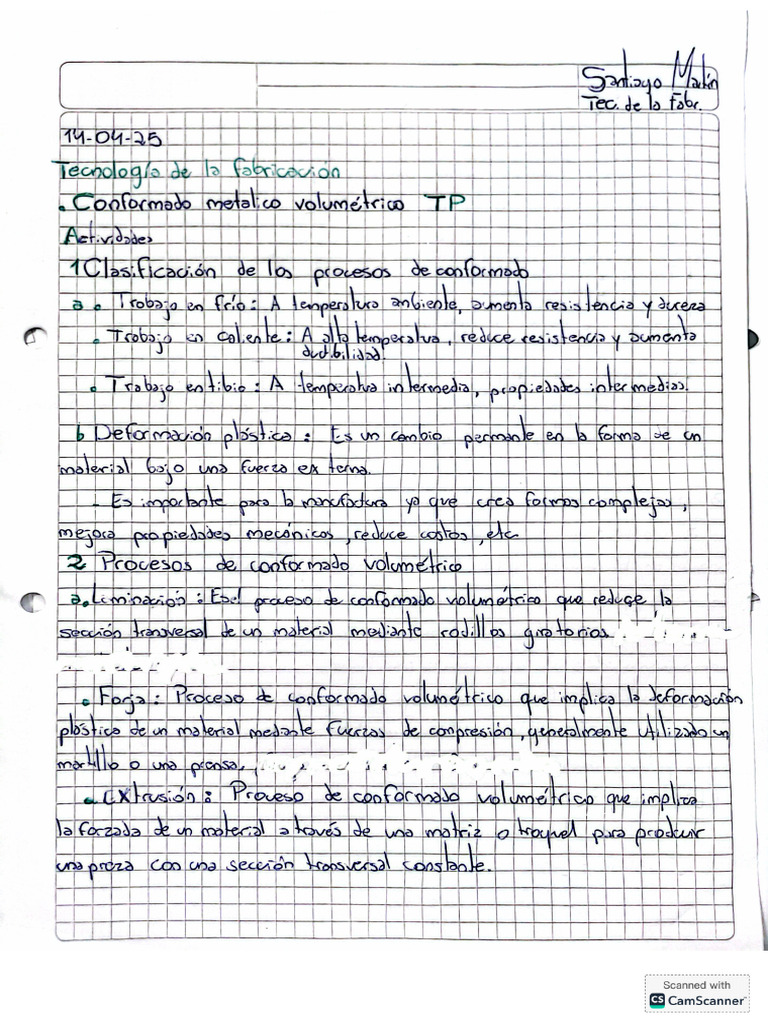 Santiago Martín
Tec. de la Fabr.
14-04-25
Tecnología de la fabricación
. Conformado metalico volumétrico TP
Actividades
1 Clasificación de los procesos de conformado
a • Trabajo en frío: A temperatura ambiente, aumenta resistencia y dureza
• Trabajo en caliente: A alta temperatura, reduce resistencia y aumenta
ductibilidad.
• Trabajo en tibio: A temperatura intermedia, propiedades intermedias.
b Deformación plástica: Es un cambio permante en la forma de un
material bajo una fuerza externa.
- Es importante para la manufactura ya que crea formas complejas,
mejora propiedades mecánicos, reduce costos, etc.
2 Procesos de conformado volumétrico
a. Liminación: Es el proceso de conformado volumétrico que reduce la
sección transversal de un material mediante rodillos giratorios
• Forja: Proceso de conformado volumétrico que implica la deformación
plástica de un material mediante fuerzas de conpresión, generalmente utilizado un
martillo o una prensa,
• Extrusión: Proceso de conformado volumétrico que implica
la forzada de un material a través de una matriz o troquel para producir
una pieza con una sección transversal constante.
Scanned with
CS CamScanner